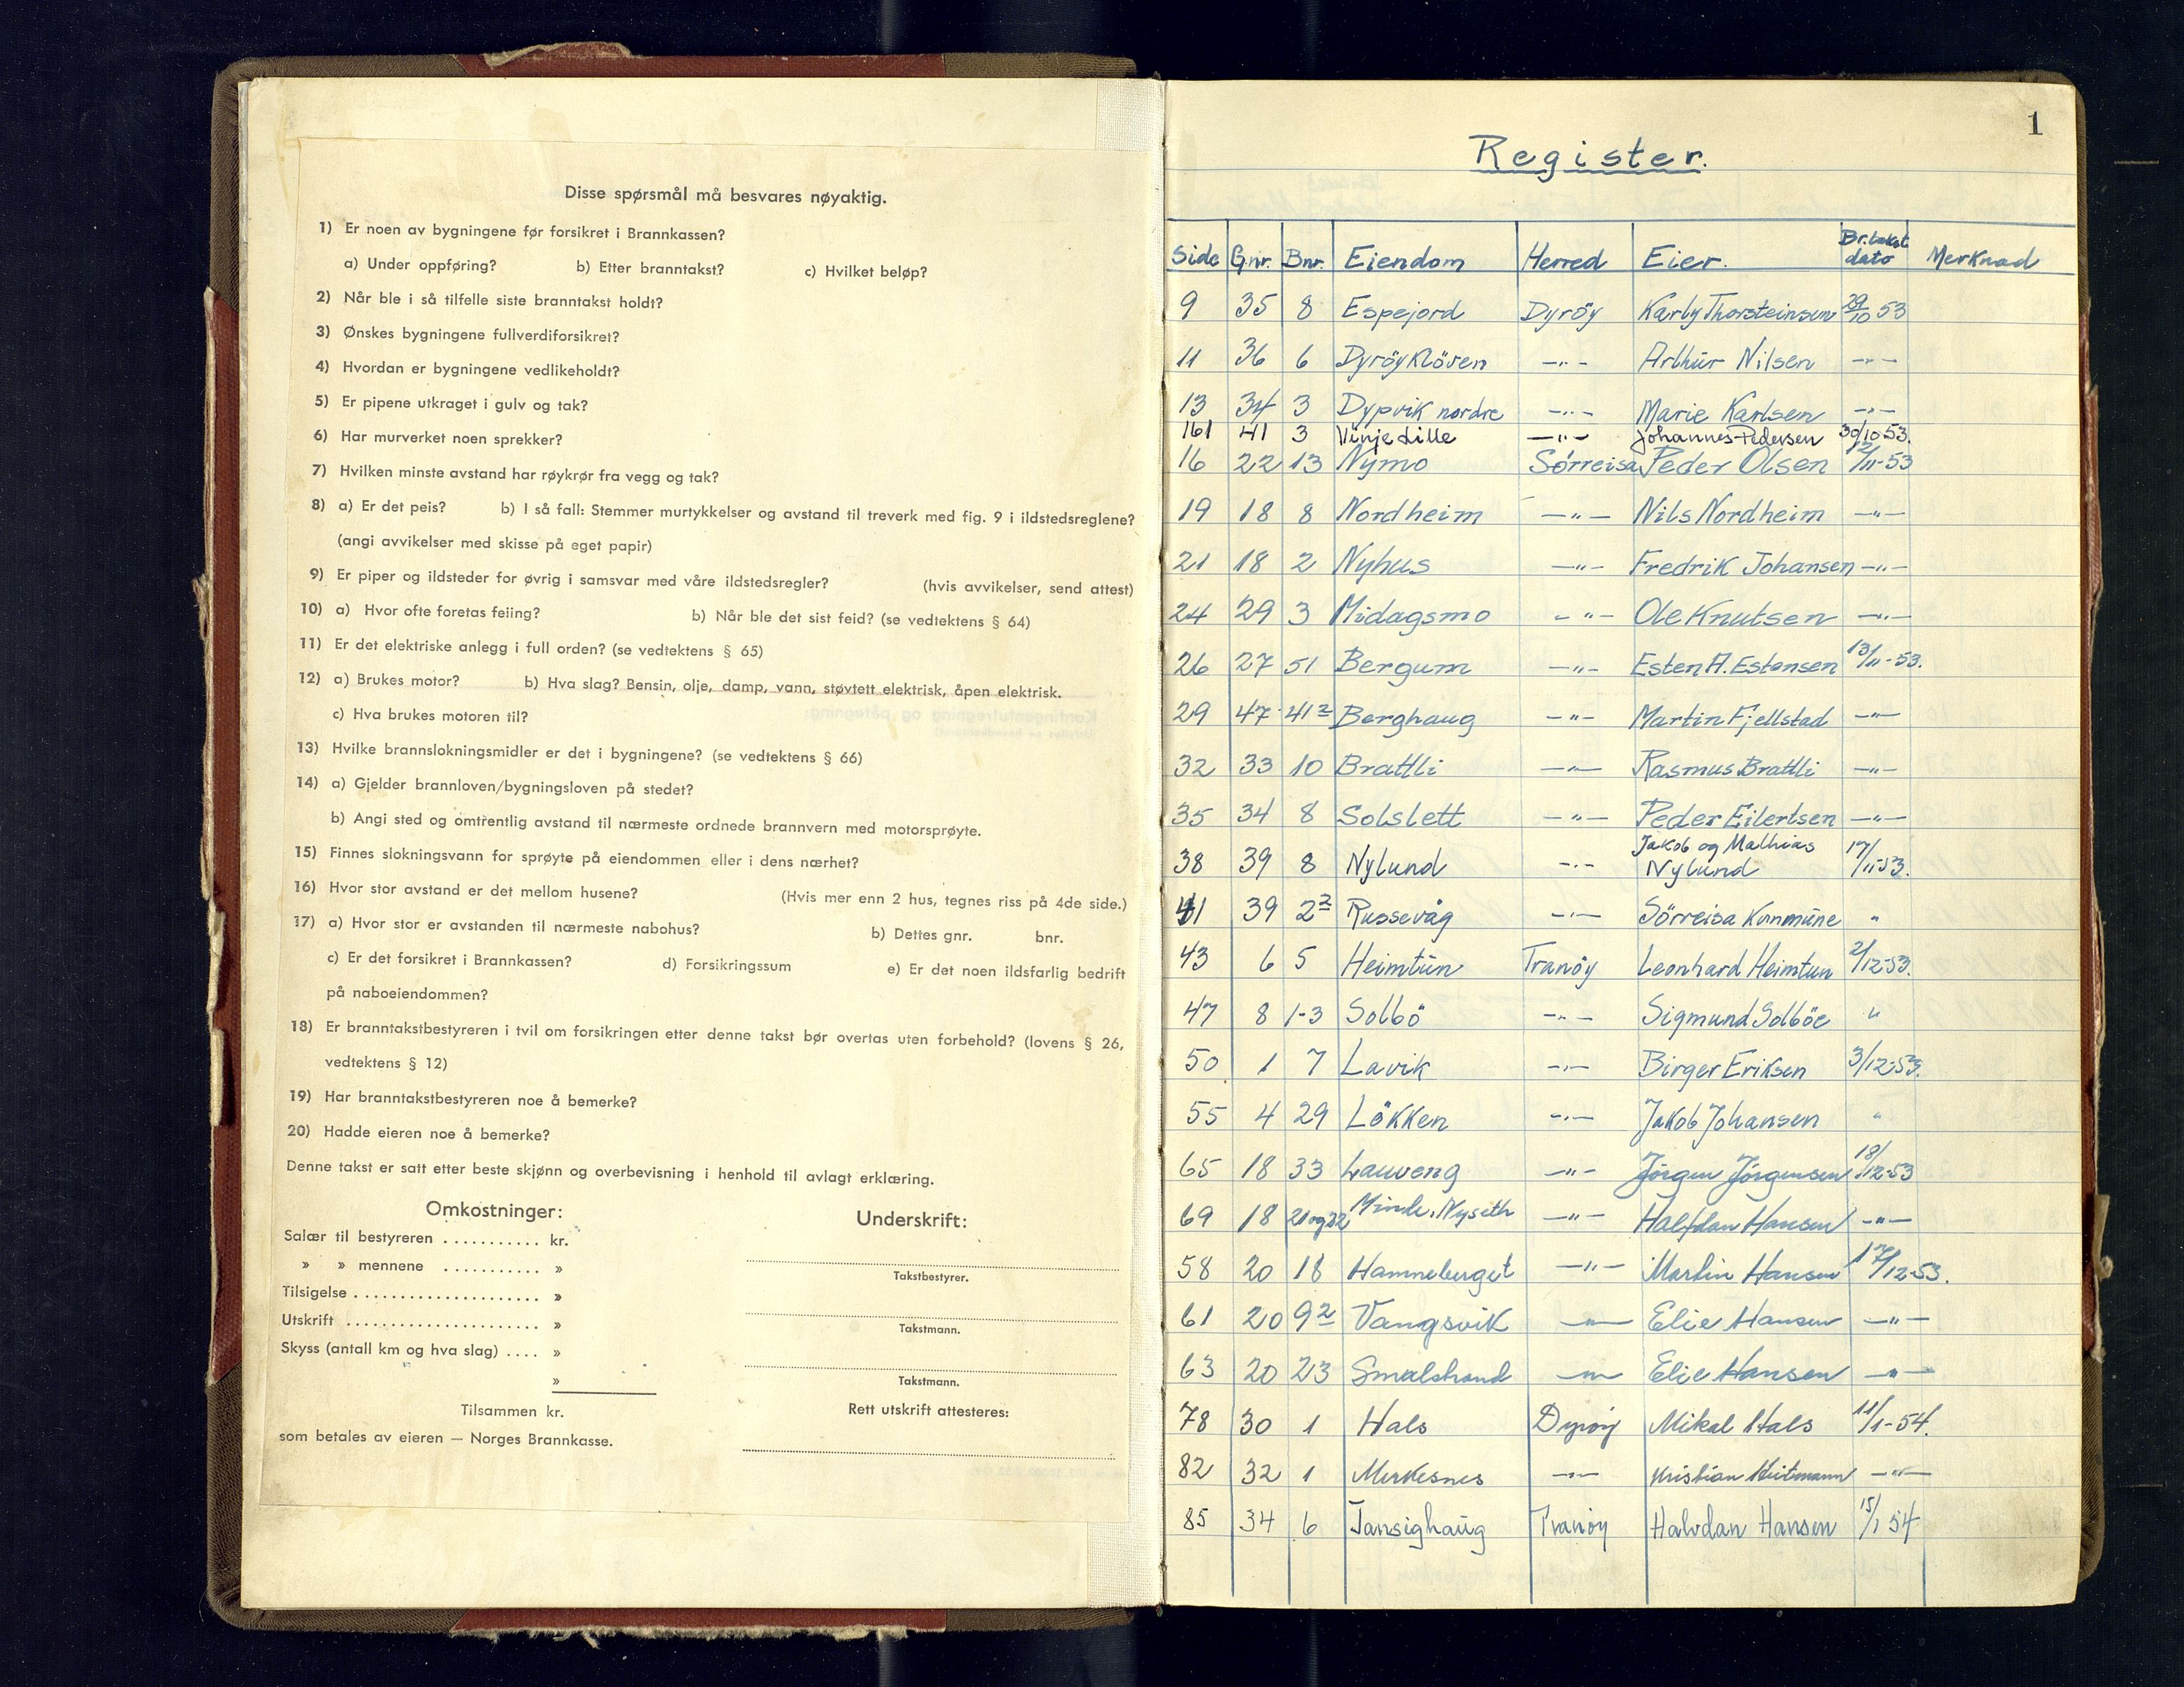 Disse spørsmål må besvares nøyaktig.
1) Er noen av bygningene før forsikret i Brannkassen?
a) Under oppføring? b) Etter branntakst? c) Hvilket beløp?
2) Når ble i så tilfelle siste branntakst holdt?
3) Ønskes bygningene fullverdiforsikret?
4) Hvordan er bygningene vedlikeholdt?
5) Er pipene utkraget i gulv og tak?
6) Har murverket noen sprekker?
7) Hvilken minste avstand har røykrør fra vegg og tak?
8) a) Er det peis? b) I så fall: Stemmer murtykkelser og avstand til treverk med fig. 9 i ildstedsreglene?
(angi avvikelser med skisse på eget papir)
9) Er piper og ildsteder for øvrig i samsvar med våre ildstedsregler? (hvis avvikelser, send attest)
10) a) Hvor ofte foretas feiing? b) Når ble det sist feid? (se vedtektens § 64)
11) Er det elektriske anlegg i full orden? (se vedtektens § 65)
12) a) Brukes motor? b) Hva slag? Bensin, olje, damp, vann, støvtett elektrisk, åpen elektrisk.
c) Hva brukes motoren til?
13) Hvilke brannslokningsmidler er det i bygningene? (se vedtektens § 66)
14) a) Gjelder brannloven/bygningsloven på stedet?
b) Angi sted og omtrentlig avstand til nærmeste ordnede brannvern med motorsprøyte.
15) Finnes slokningsvann for sprøyte på eiendommen eller i dens nærhet?
16) Hvor stor avstand er det mellom husene? (Hvis mer enn 2 hus, tegnes riss på 4de side.)
17) a) Hvor stor er avstanden til nærmeste nabohus? b) Dettes gnr. bnr.
c) Er det forsikret i Brannkassen? d) Forsikringssum e) Er det noen ildsfarlig bedrift
på naboeiendommen?
18) Er branntakstbestyreren i tvil om forsikringen etter denne takst bør overtas uten forbehold? (lovens § 26,
vedtektens § 12)
19) Har branntakstbestyreren noe å bemerke?
20) Hadde eieren noe å bemerke?
Denne takst er satt etter beste skjønn og overbevisning i henhold til avlagt erklæring.
Omkostninger:
Salær til bestyreren ........... kr.
» » mennene ........... »
Tilsigelse ..................... »
Utskrift ...................... »
Skyss (antall km og hva slag) .... »
»
Tilsammen kr.
som betales av eieren — Norges Brannkasse.
Underskrift:
Takstbestyrer.
Takstmann.
Takstmann.
Rett utskrift attesteres:
1
Register.
Side Gnr. Bnr. Eiendom Herred Eier. Br.takst dato Merknad
9 35 8 Espejord Dyröy Karly Thorsteinsen 29/10 53
11 36 6 Dyröyklöven —"— Arthur Nilsen —"—
13 34 3 Dypvik nordre —"— Marie Karlsen —"—
161 41 3 Vinje Lille —"— Johannes Pedersen 30/10-53.
16 22 13 Nymo Sörreisa Peder Olsen 12/11-53
19 18 8 Nordheim —"— Nils Nordheim —"—
21 18 2 Nyhus —"— Fredrik Johansen —"—
24 29 3 Midagsmo —"— Ole Knutsen —"—
26 27 51 Bergum —"— Esten A. Estensen 13/11-53.
29 47 41² Berghaug —"— Martin Fjellstad —"—
32 33 10 Brattli —"— Rasmus Brattli —"—
35 34 8 Solslett —"— Peder Eilertsen —"—
38 39 8 Nylund —"— Jakob og Mathias Nylund 17/11-53.
41 39 2² Russevåg —"— Sörreisa Kommune "
43 6 5 Heimtun Tranöy Leonhard Heimtun 2/12-53.
47 8 1-3 Solbö —"— Sigmund Solböe "
50 1 7 Lavik —"— Birger Eriksen 3/12-53.
55 4 29 Lökken —"— Jakob Johansen "
65 18 33 Lauveng —"— Jörgen Jörgensen 18/12-53
69 18 21 og 22 Minde, Nyseth —"— Halfdan Hansen —"—
58 20 18 Hamneberget —"— Martin Hansen 17/12-53.
61 20 9² Vangsvik —"— Elie Hansen —"—
63 20 23 Smalstrand —"— Elie Hansen —"—
78 30 1 Hals Dyröy Mikal Hals 11/1-54.
82 32 1 Merkesnes —"— Kristian Heitmann —"—
85 34 6 Jansighaug Tranöy Halvdan Hansen 15/1 54